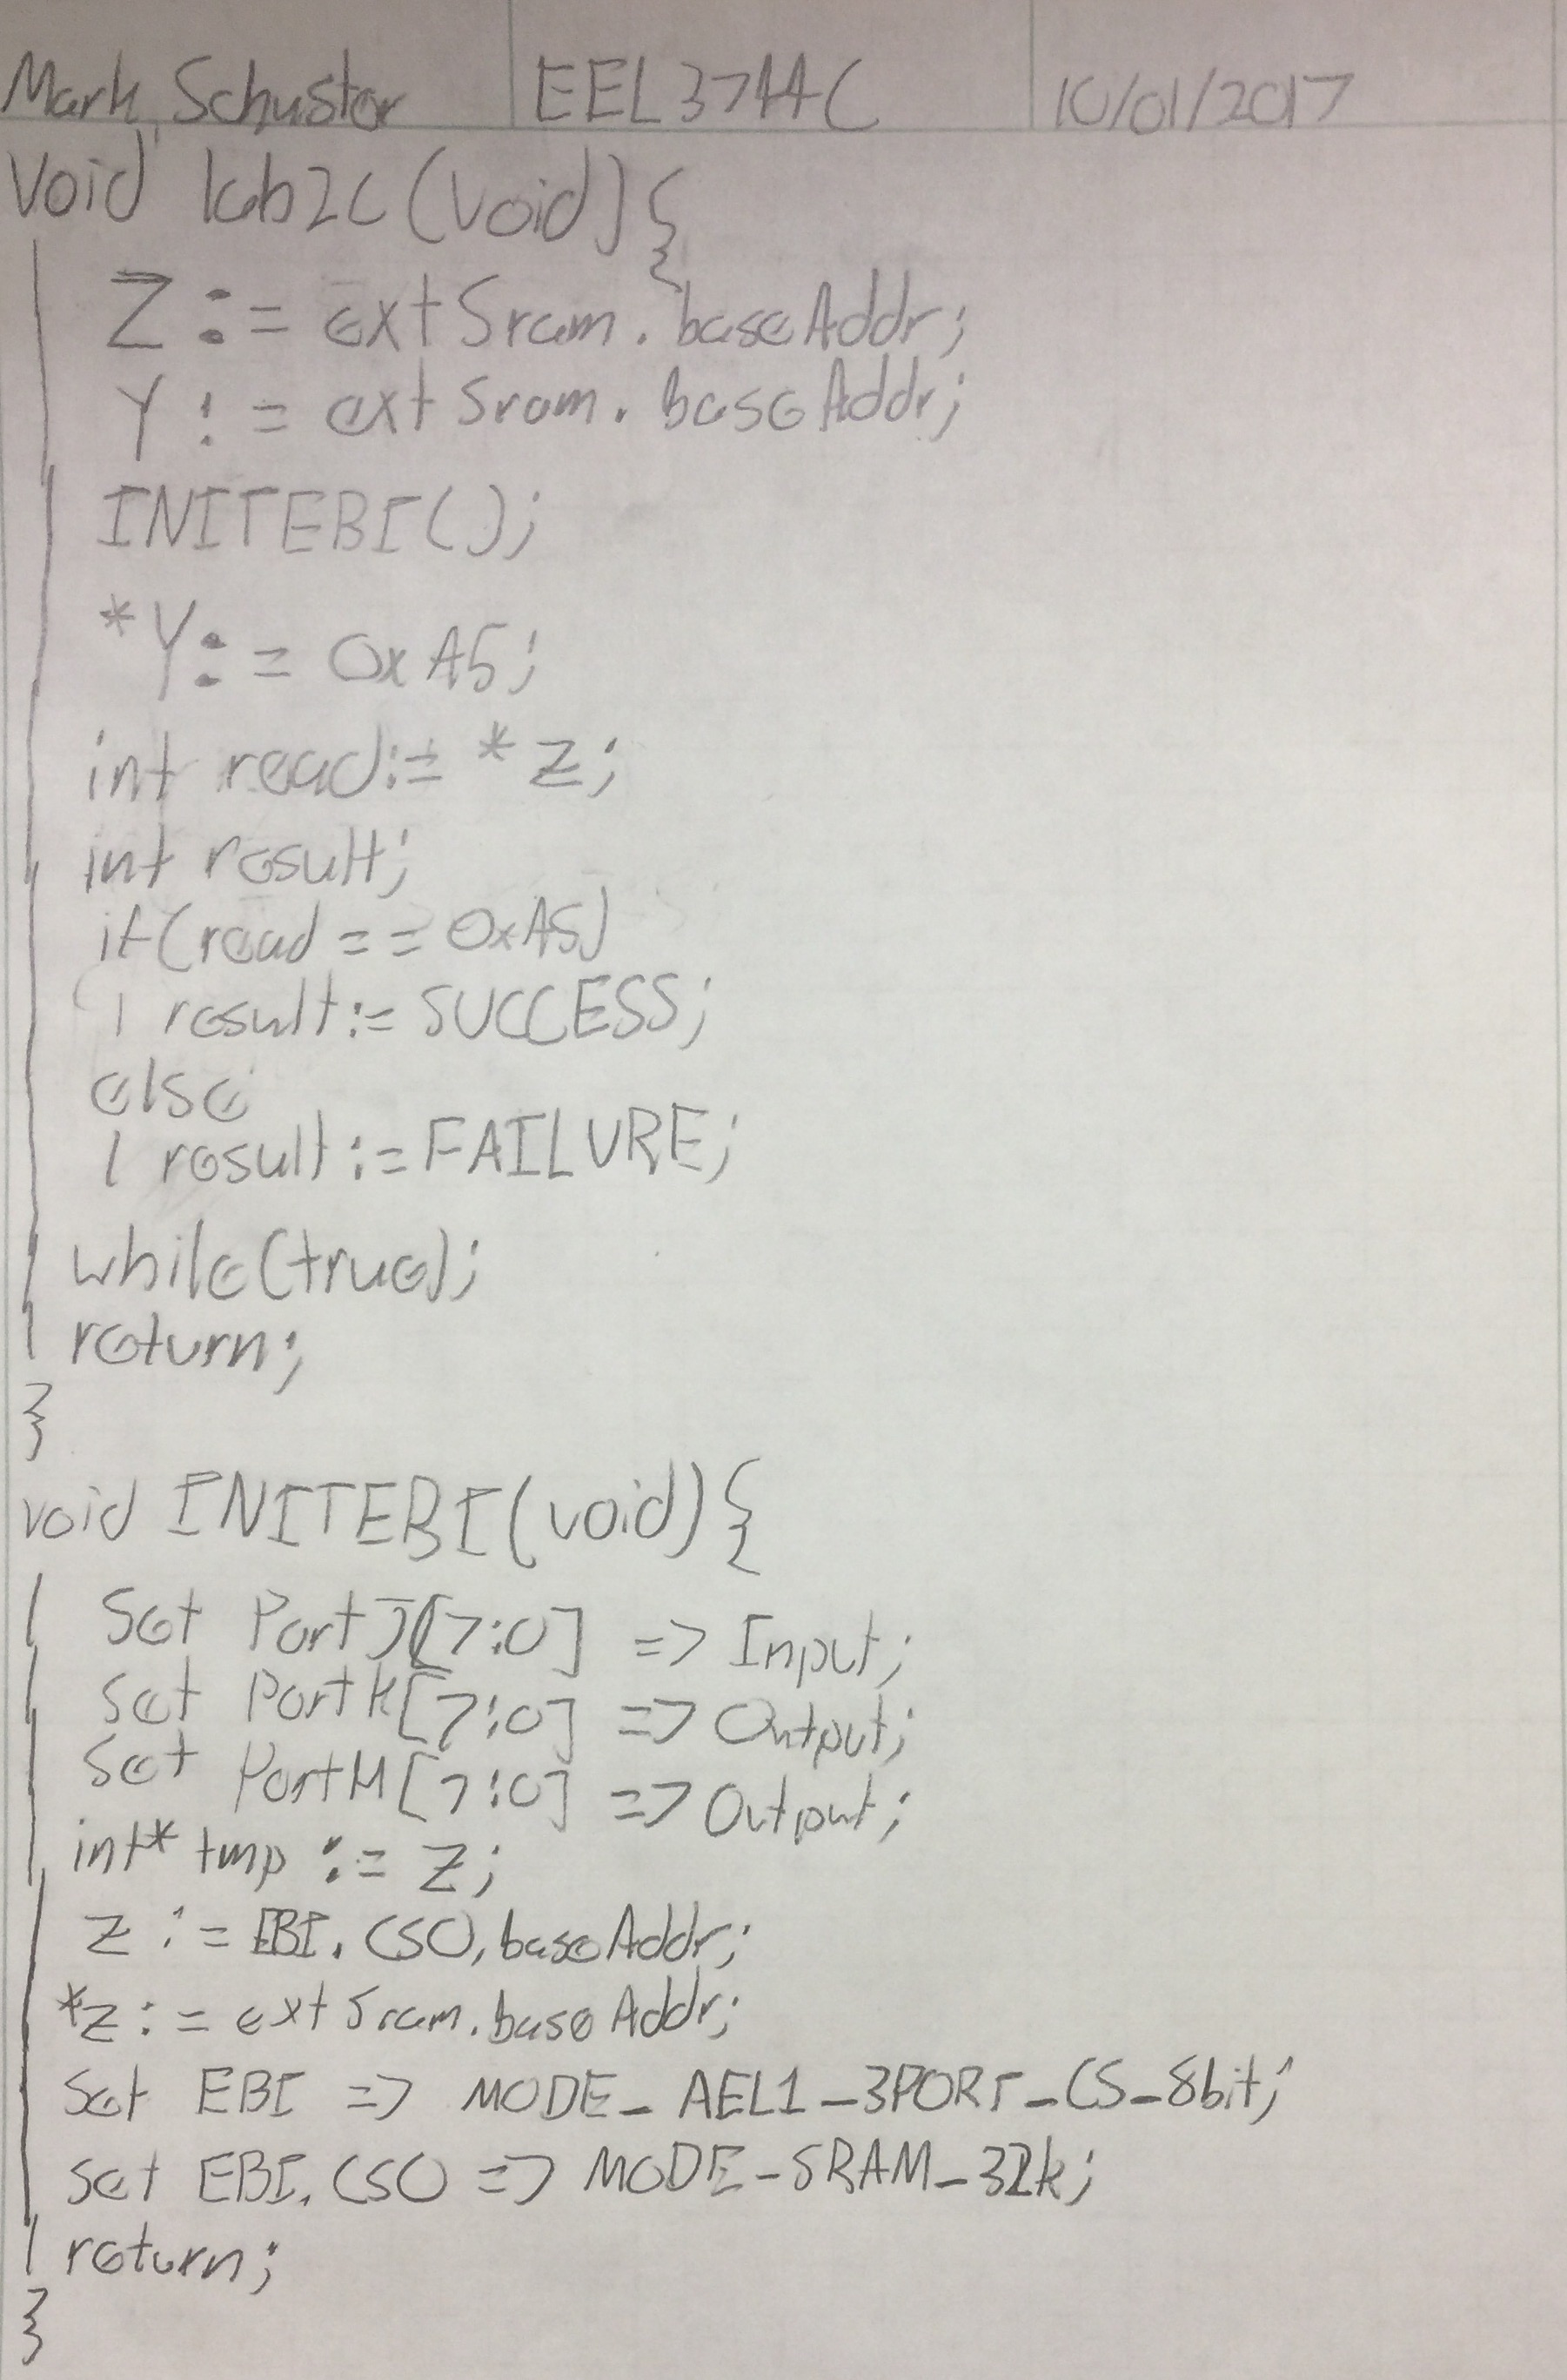 Mark Schuster EEL3744C 10/01/2017
void lab2c(void){
Z := extSram.baseAddr;
Y := extSram.baseAddr;
INITEBI();
*Y := 0xA5;
int read := *Z;
int result;
if(read == 0xA5)
result := SUCCESS;
else
result := FAILURE;
while(true);
return;
}
void INITEBI(void){
Set PortJ[7:0] => Input;
Set PortK[7:0] => Output;
Set PortH[7:0] => Output;
int* tmp := Z;
Z := EBI.CS0.baseAddr;
*Z := extSram.baseAddr;
Set EBI => MODE_AEL1_3PORT_CS_8bit;
Set EBI.CS0 => MODE_SRAM_32k;
return;
}